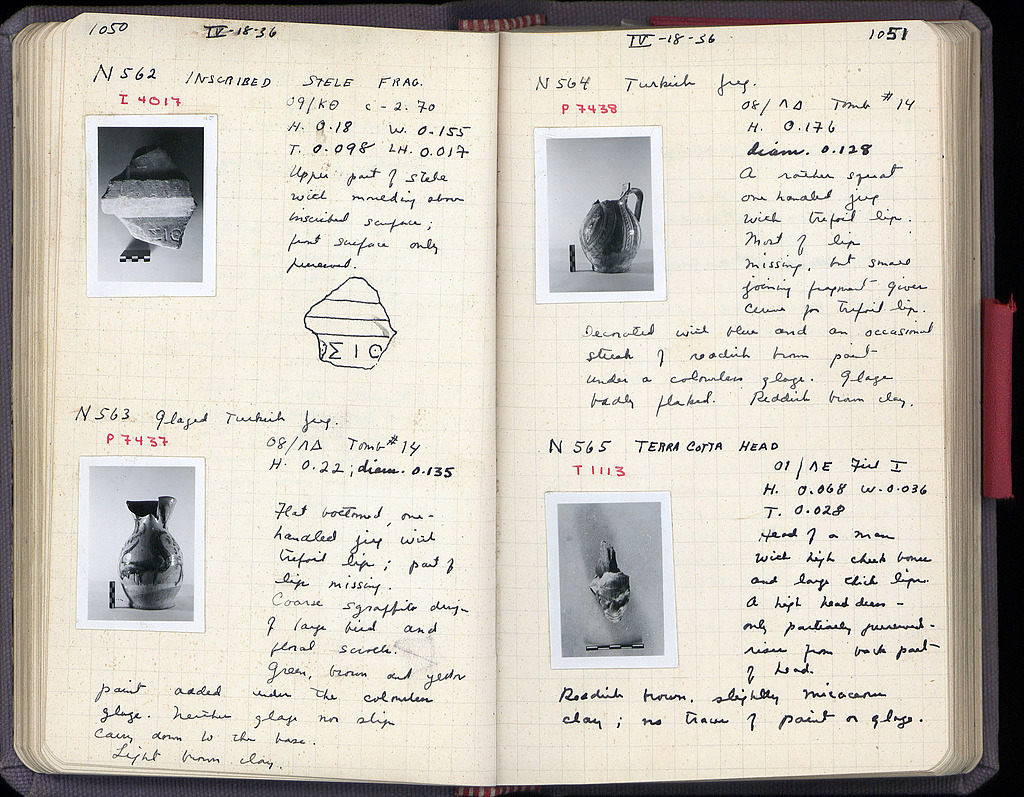 1050 IV-18-36
N 562 INSCRIBED STELE FRAG.
I 4017
09/ΚΘ C - 2.70
H. 0.18 W. 0.155
T. 0.098 LH. 0.017
Upper part of stele
with moulding above
inscribed surface;
front surface only
preserved.
ΣΙΟ
N 563 Glazed Turkish jug.
P 7437
08/ΛΔ Tomb #14
H. 0.22; diam. 0.135
Flat bottomed, one-
handled jug with
trefoil lip; part of
lip missing.
Coarse sgraffito design
of large bird and
floral scrolls.
Green, brown and yellow
paint added under the colourless
glaze. Neither glaze nor slip
carry down to the base.
Light brown clay.
IV-18-36 1051
N 564 Turkish jug.
P 7438
08/ΛΔ Tomb #14
H. 0.176
diam. 0.128
A rather squat
one handled jug
with trefoil lip.
Most of lip
missing, but small
joining fragment gives
curve for trefoil lip.
Decorated with blue and an occasional
streak of reddish brown paint
under a colourless glaze. Glaze
badly flaked. Reddish brown clay.
N 565 TERRA COTTA HEAD
T 1113
01/ΛΕ Fill I
H. 0.068 W. 0.036
T. 0.028
Head of a man
with high cheek bones
and large thick lips.
A high headdress -
only partially preserved -
rises from back part
of head.
Reddish brown, slightly micaceous
clay; no traces of paint or glaze.